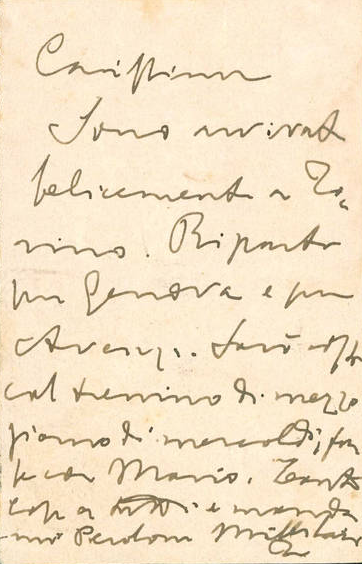 Carissimo
Sono arrivato
felicemente a To-
rino. Riparto
per Genova e per
Avenza. Sarò
col trenino di mezzo
giorno di mercoldì, for
se con Mario. Tante
cose a tutti e manda
mi